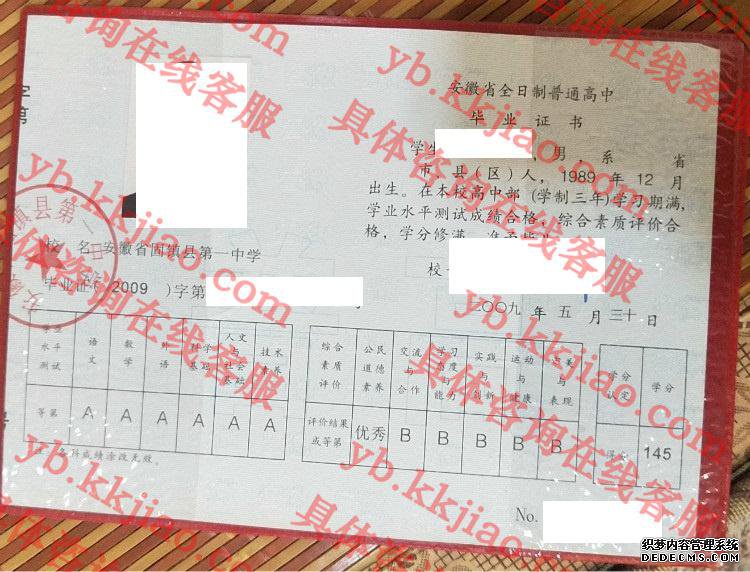 安徽省全日制普通高中
毕业证书
学生 ，男，系 省
市、县（区）人，1989 年 12 月
出生。在本校高中部（学制三年）学习期满，
学业水平测试成绩合格，综合素质评价合
格，学分修满，准予毕业
校
二〇〇九 年 五 月 三十 日
校 名 安徽省固镇县第一中学
毕业证（ 2009 ）字第 号
学业水平测试 语文 数学 外语 科学基础 人文与社会基础 技术素养
等第 A A A A A A
注：各科成绩涂改无效。
综合素质评价 公民道德素养 交流与合作 学习态度与能力 实践与创新 运动与健康 审美与表现
评价结果或等第 优秀 B B B B B
学分认定 学分
得分 145
No.
字第
镇县第一中
咨询在线客服
yb.kkjiao.com
具体咨询在线客服
yb.kkjiao.com
具体咨询在线客服
yb.kkjiao.com
具体咨询在线客服
织梦内容管理系统
DEDECMS.COM